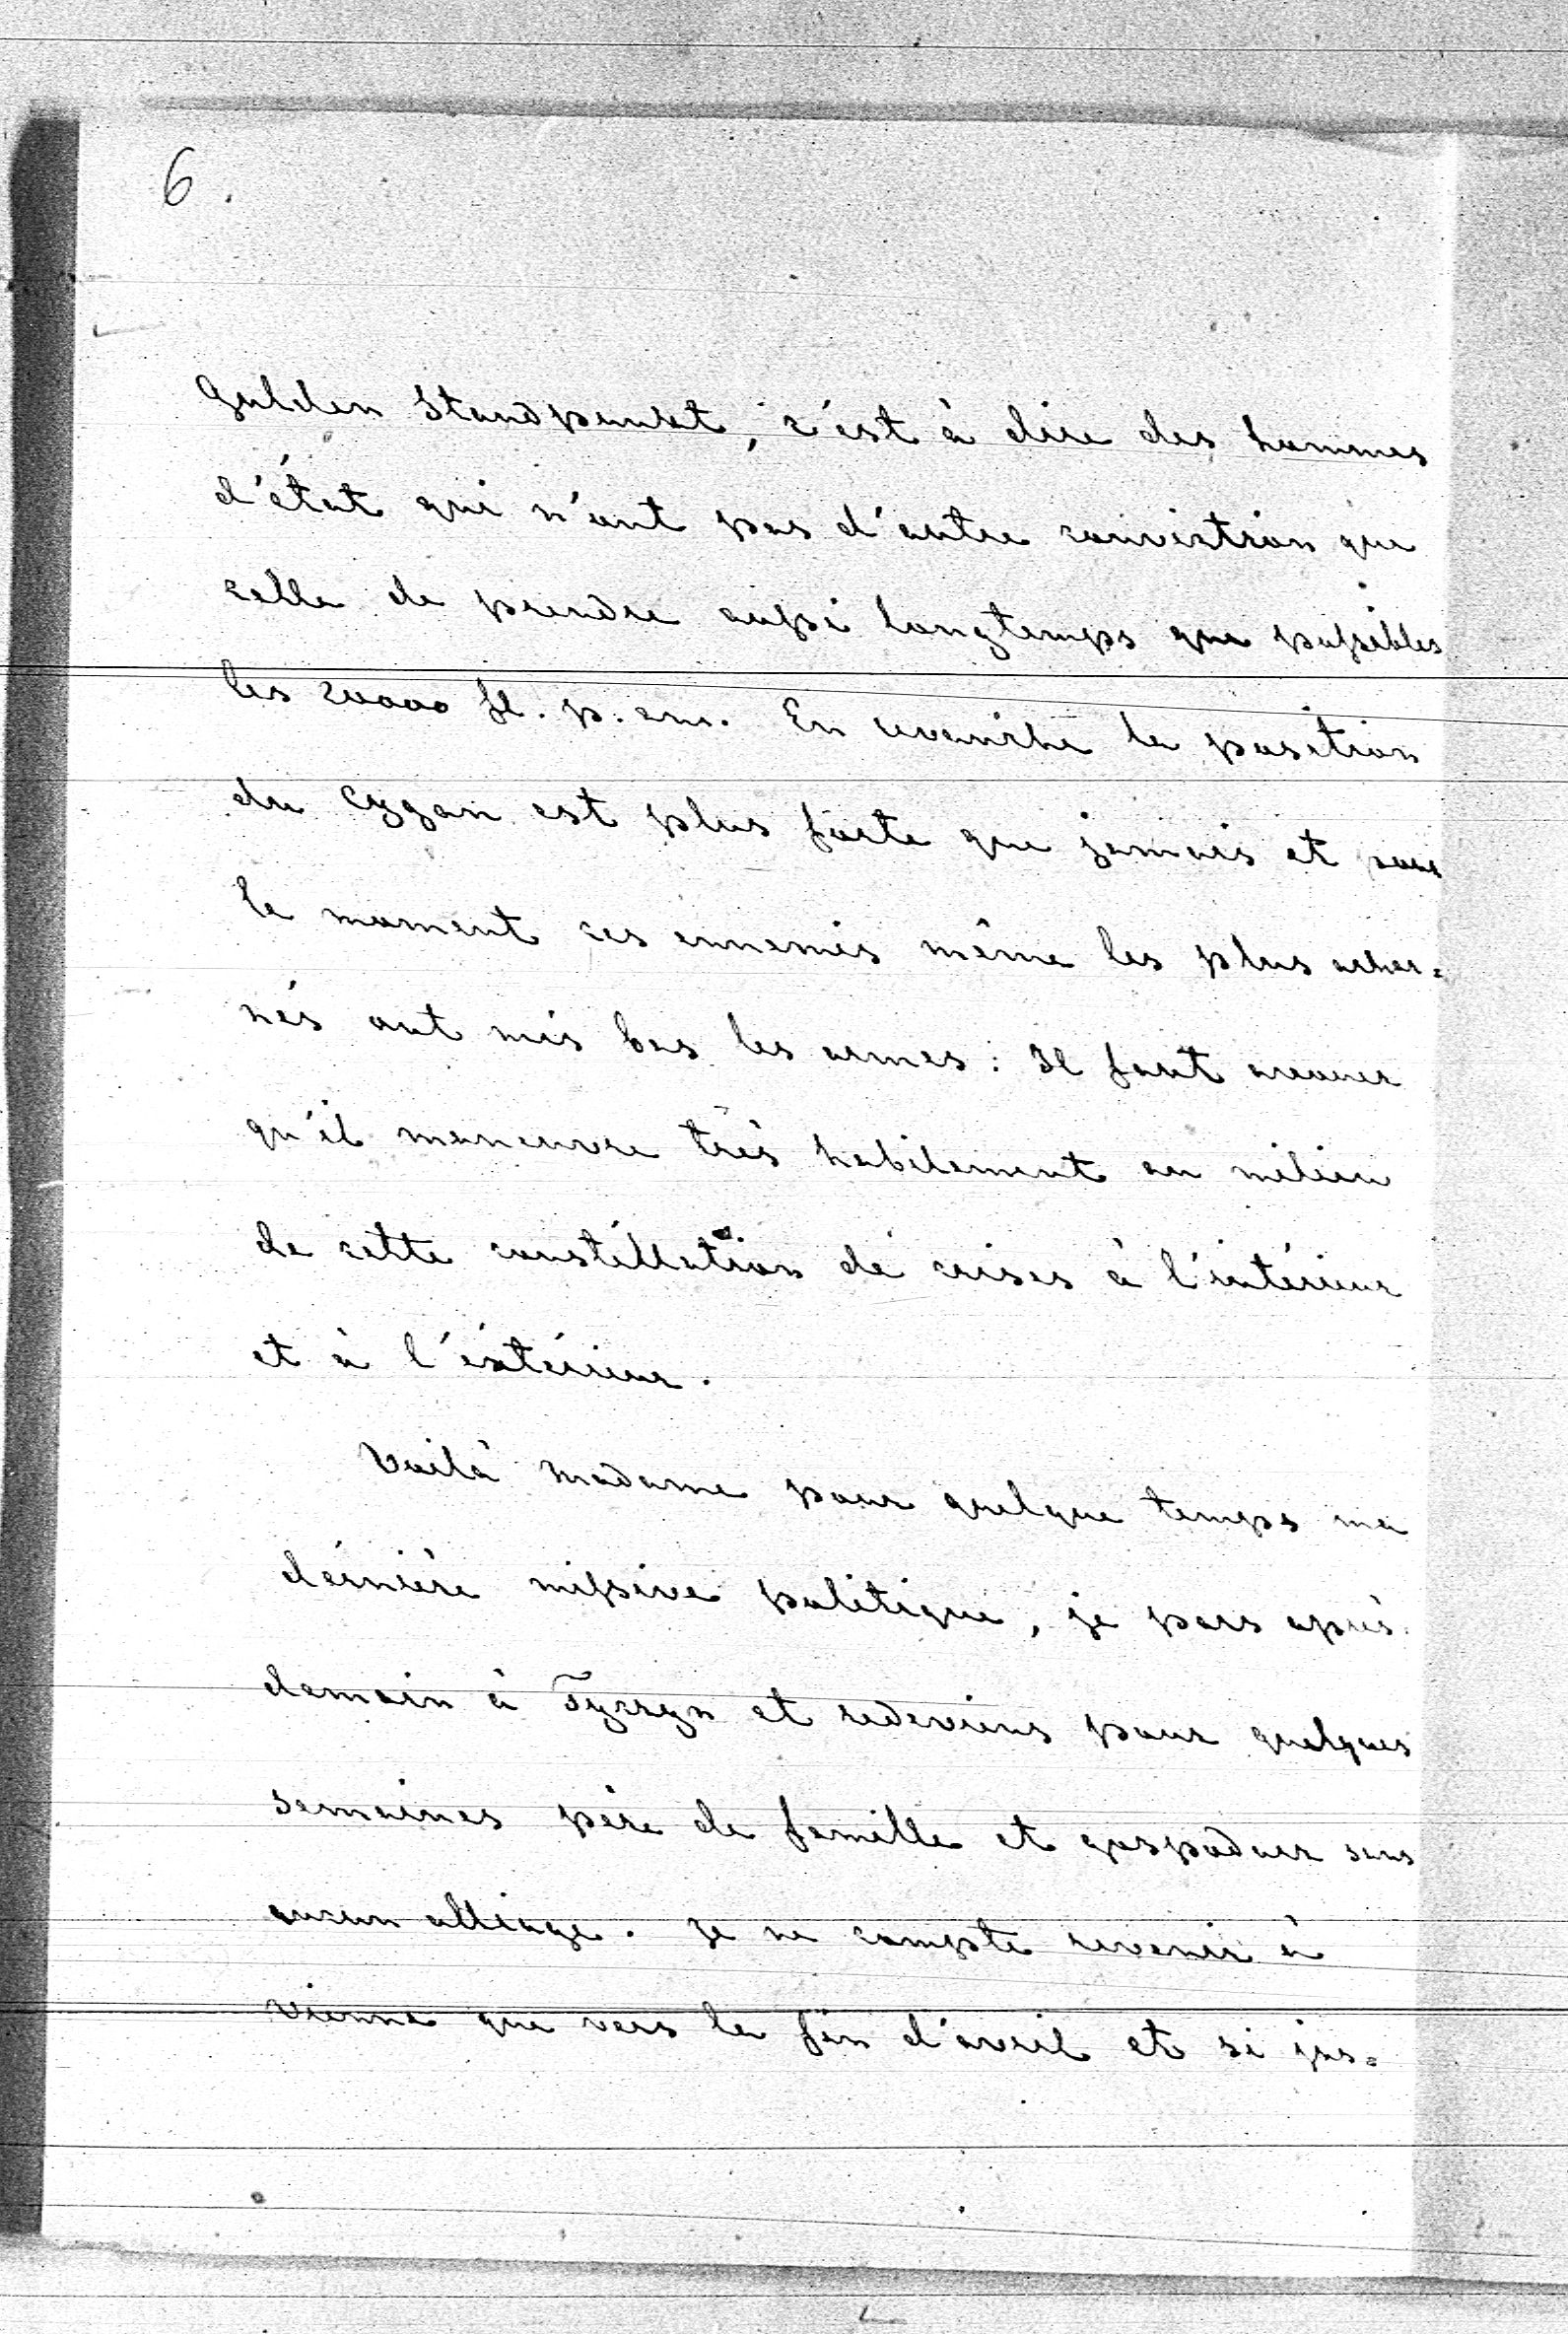 6.
Gulden Standpunkt, c'est à dire des hommes
d'état qui n'ont pas d'autre conviction que
celle de prendre aussi longtemps que possibles
les 20000 fl. p. an. En revanche la position
du Cygan est plus forte que jamais et pour
le moment ces ennemis même les plus achar=
nés ont mis bas les armes: Il faut avouer
qu'il maneuvre très habilement au milieu
de cette constéllation de crises à l'intérieur
et à l'éxtérieur.
Voilà madame pour quelque temps ma
dérnière missive politique, je pars après
demain à Tyczyn et redeviens pour quelques
semaines père de famille et gospodarz sans
aucun alliage. Je ne compte revenir à
Vienne que vers la fin d'avril et si jus=